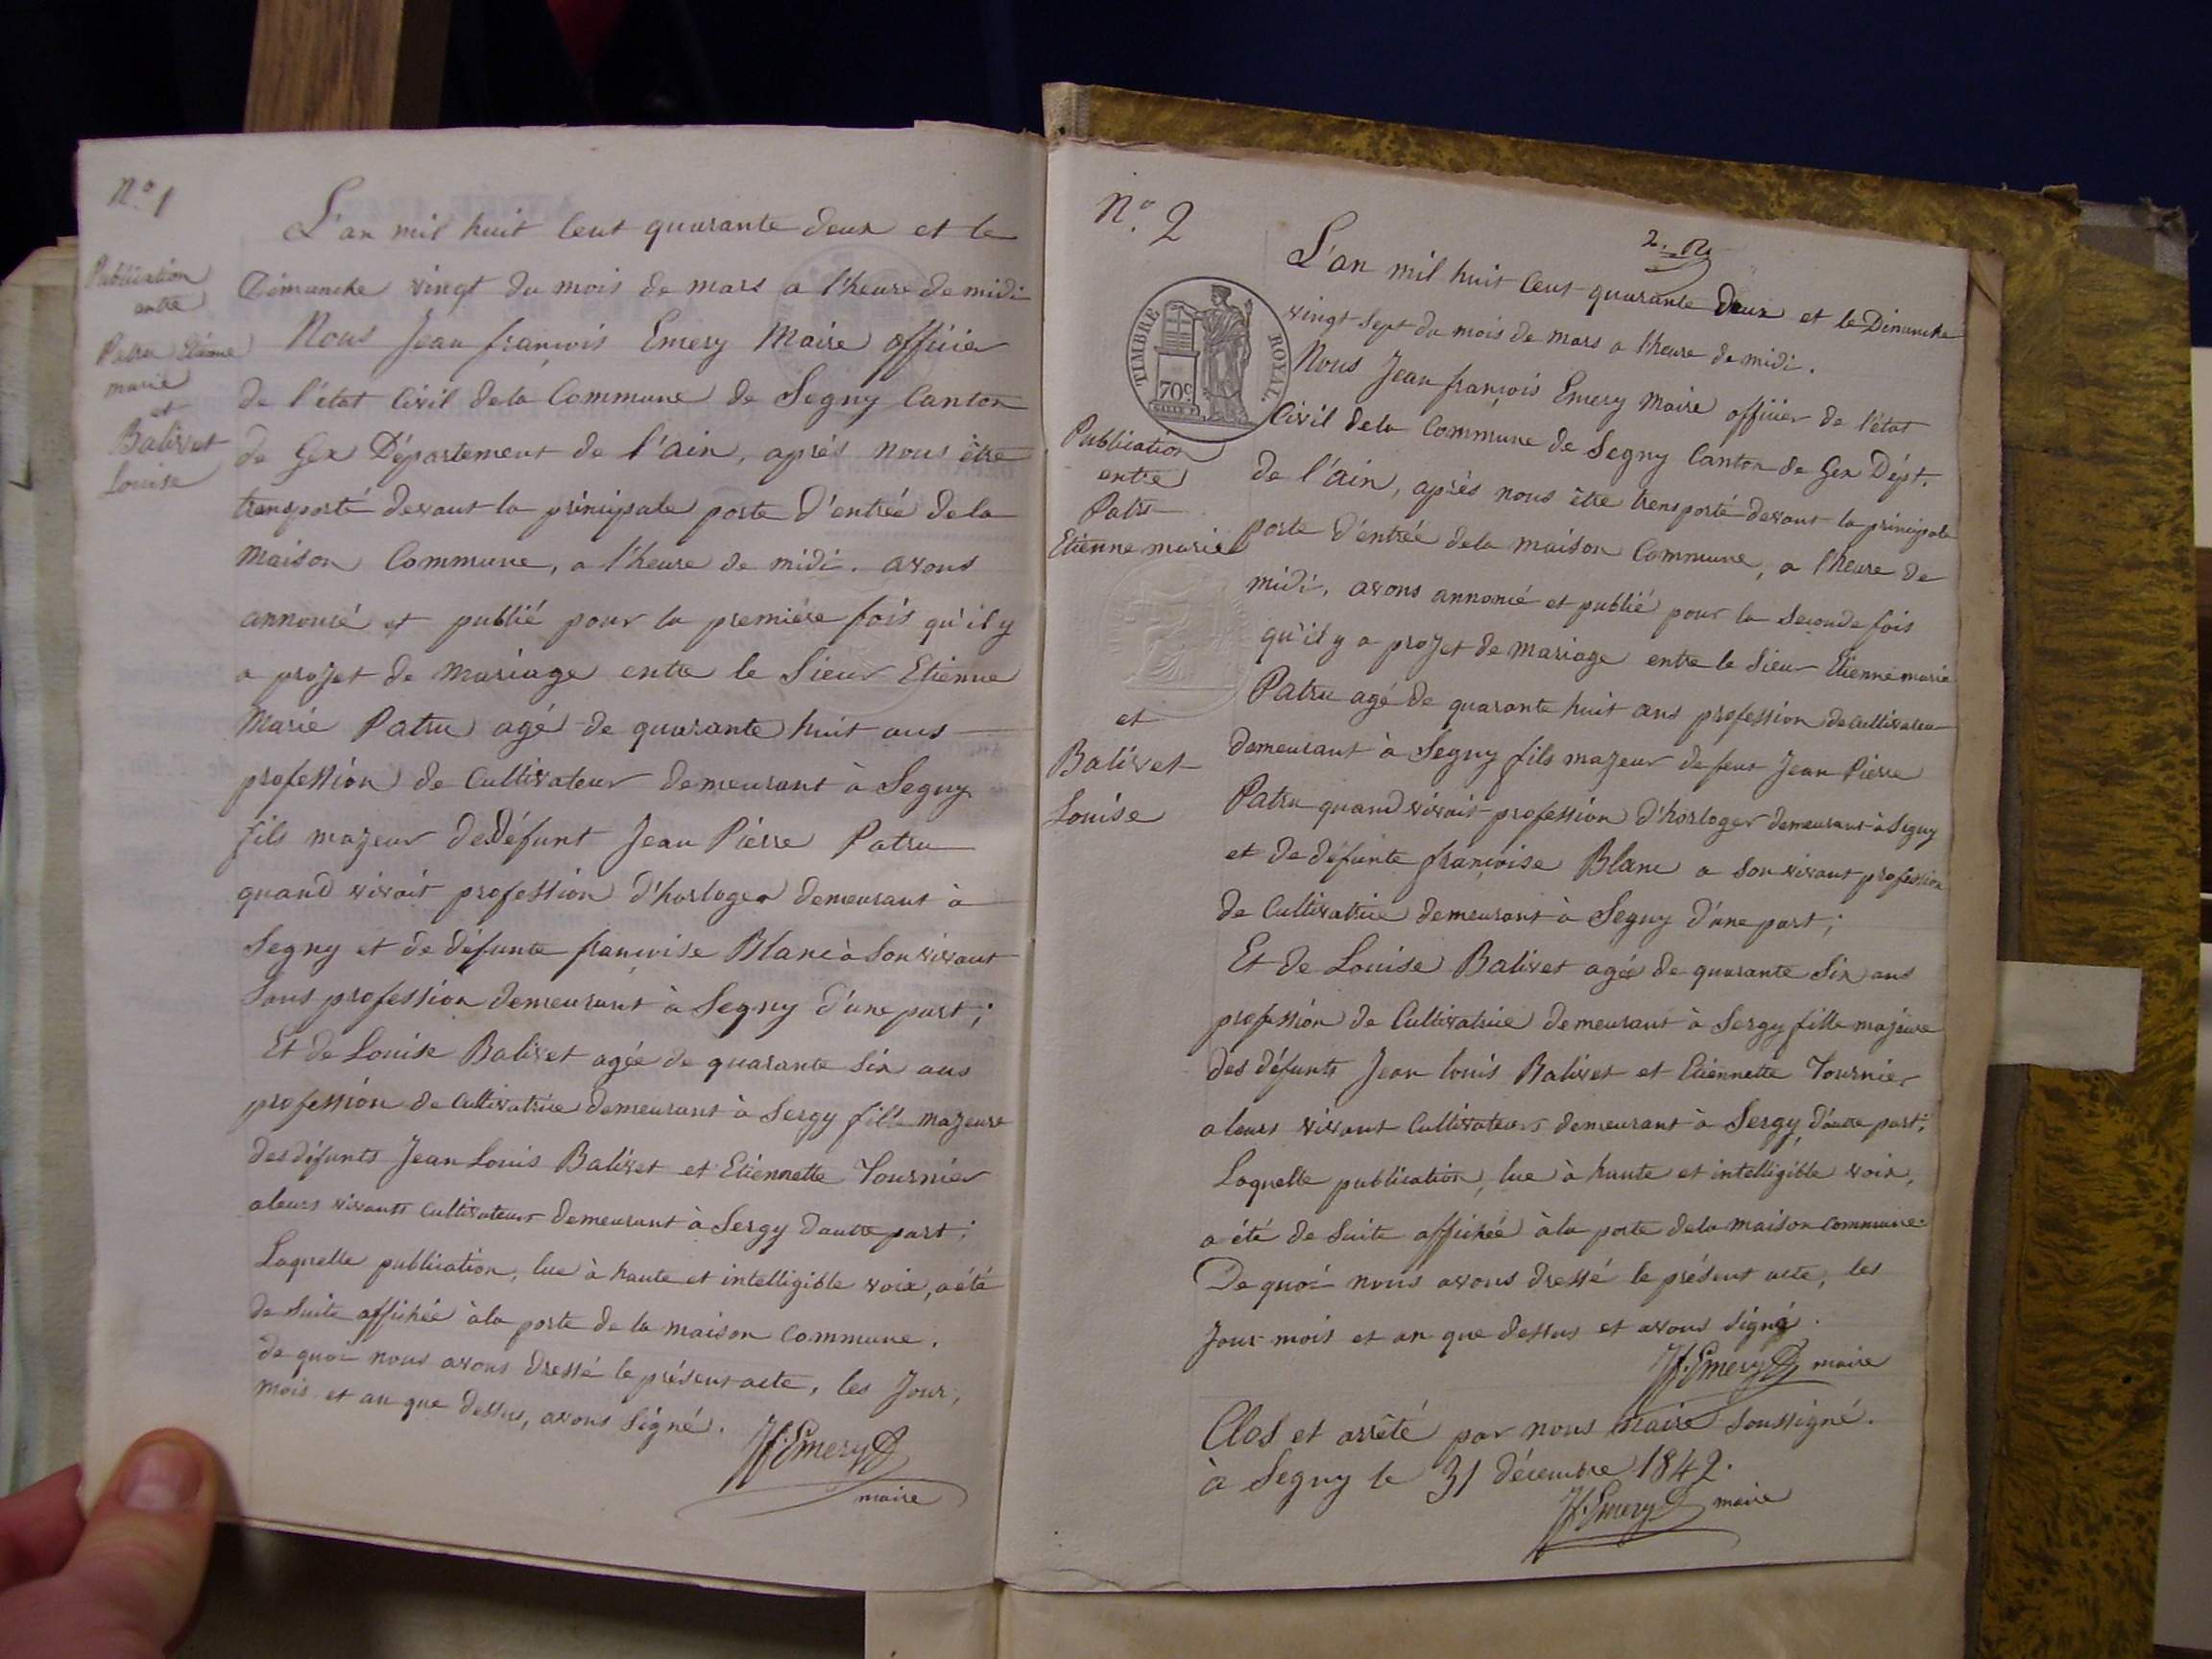 N.º 1
Publication
entre
Patru Etienne
marie
et
Balivet
Louise
L'an mil huit Cent quarante deux et le
Dimanche vingt du mois de mars a l'heure de midi
Nous Jean françois Emery Maire officier
de l'état Civil dela Commune de Segny Canton
de Gex Département de l'ain, après nous être
transporté devant la principale porte d'entrée dela
maison Commune, a l'heure de midi. avons
annoncé et publié pour la première fois qu'il y
a projet de mariage entre le Sieur Etienne
Marie Patru agé de quarante huit ans
profession de Cultivateur demeurant à Segny
fils majeur de défunt Jean Pierre Patru
quand vivait profession d'horloger demeurant à
Segny et de défunte françoise Blanc à son vivant
Sans profession demeurant à Segny d'une part;
Et de Louise Balivet agée de quarante Six ans
profession de Cultivatrice demeurant à Sergy fille majeure
des défunts Jean Louis Balivet et Etiennette Tournier
a leurs vivants Cultivateurs demeurant à Sergy d'autre part;
Laquelle publication, lue à haute et intelligible voix, a été
de Suite affichée à la porte de la maison Commune.
de quoi nous avons dressé le présent acte, les Jour,
mois et an que dessus, avons Signé.
Jf: Emery
maire
N.º 2
2.
TIMBRE ROYAL.
70c
Publication
entre
Patru
Etienne marie
et
Balivet
Louise
L'an mil huit Cent quarante deux et le Dimanche
vingt Sept du mois de mars a l'heure de midi.
Nous Jean françois Emery Maire officier de l'état
Civil dela Commune de Segny Canton de Gex Dépt.
de l'ain, après nous être transporté devant la principale
porte d'entrée dela maison Commune, a l'heure de
midi, avons annoncé et publié pour la Seconde fois
qu'il y a projet de mariage entre le Sieur Etienne marie
Patru agé de quarante huit ans profession de Cultivateur
demeurant à Segny fils majeur de feux Jean Pierre
Patru quand vivait profession d'horloger demeurant à Segny
et de défunte françoise Blanc a Son vivant profession
de Cultivatrice demeurant à Segny d'une part;
Et de Louise Balivet agée de quarante Six ans
profession de Cultivatrice demeurant à Sergy fille majeure
des défunts Jean louis Balivet et Etiennette Tournier
a leurs vivant Cultivateurs demeurant à Sergy, d'autre part;
Laquelle publication, lue à haute et intelligible voix,
a été de Suite affichée à la porte dela maison commune.
De quoi nous avons dressé le présent acte, les
Jour mois et an que dessus et avons Signé.
Jf: Emery maire
Clos et arrêté par nous maire Soussigné.
à Segny le 31 décembre 1842.
Jf: Emery maire